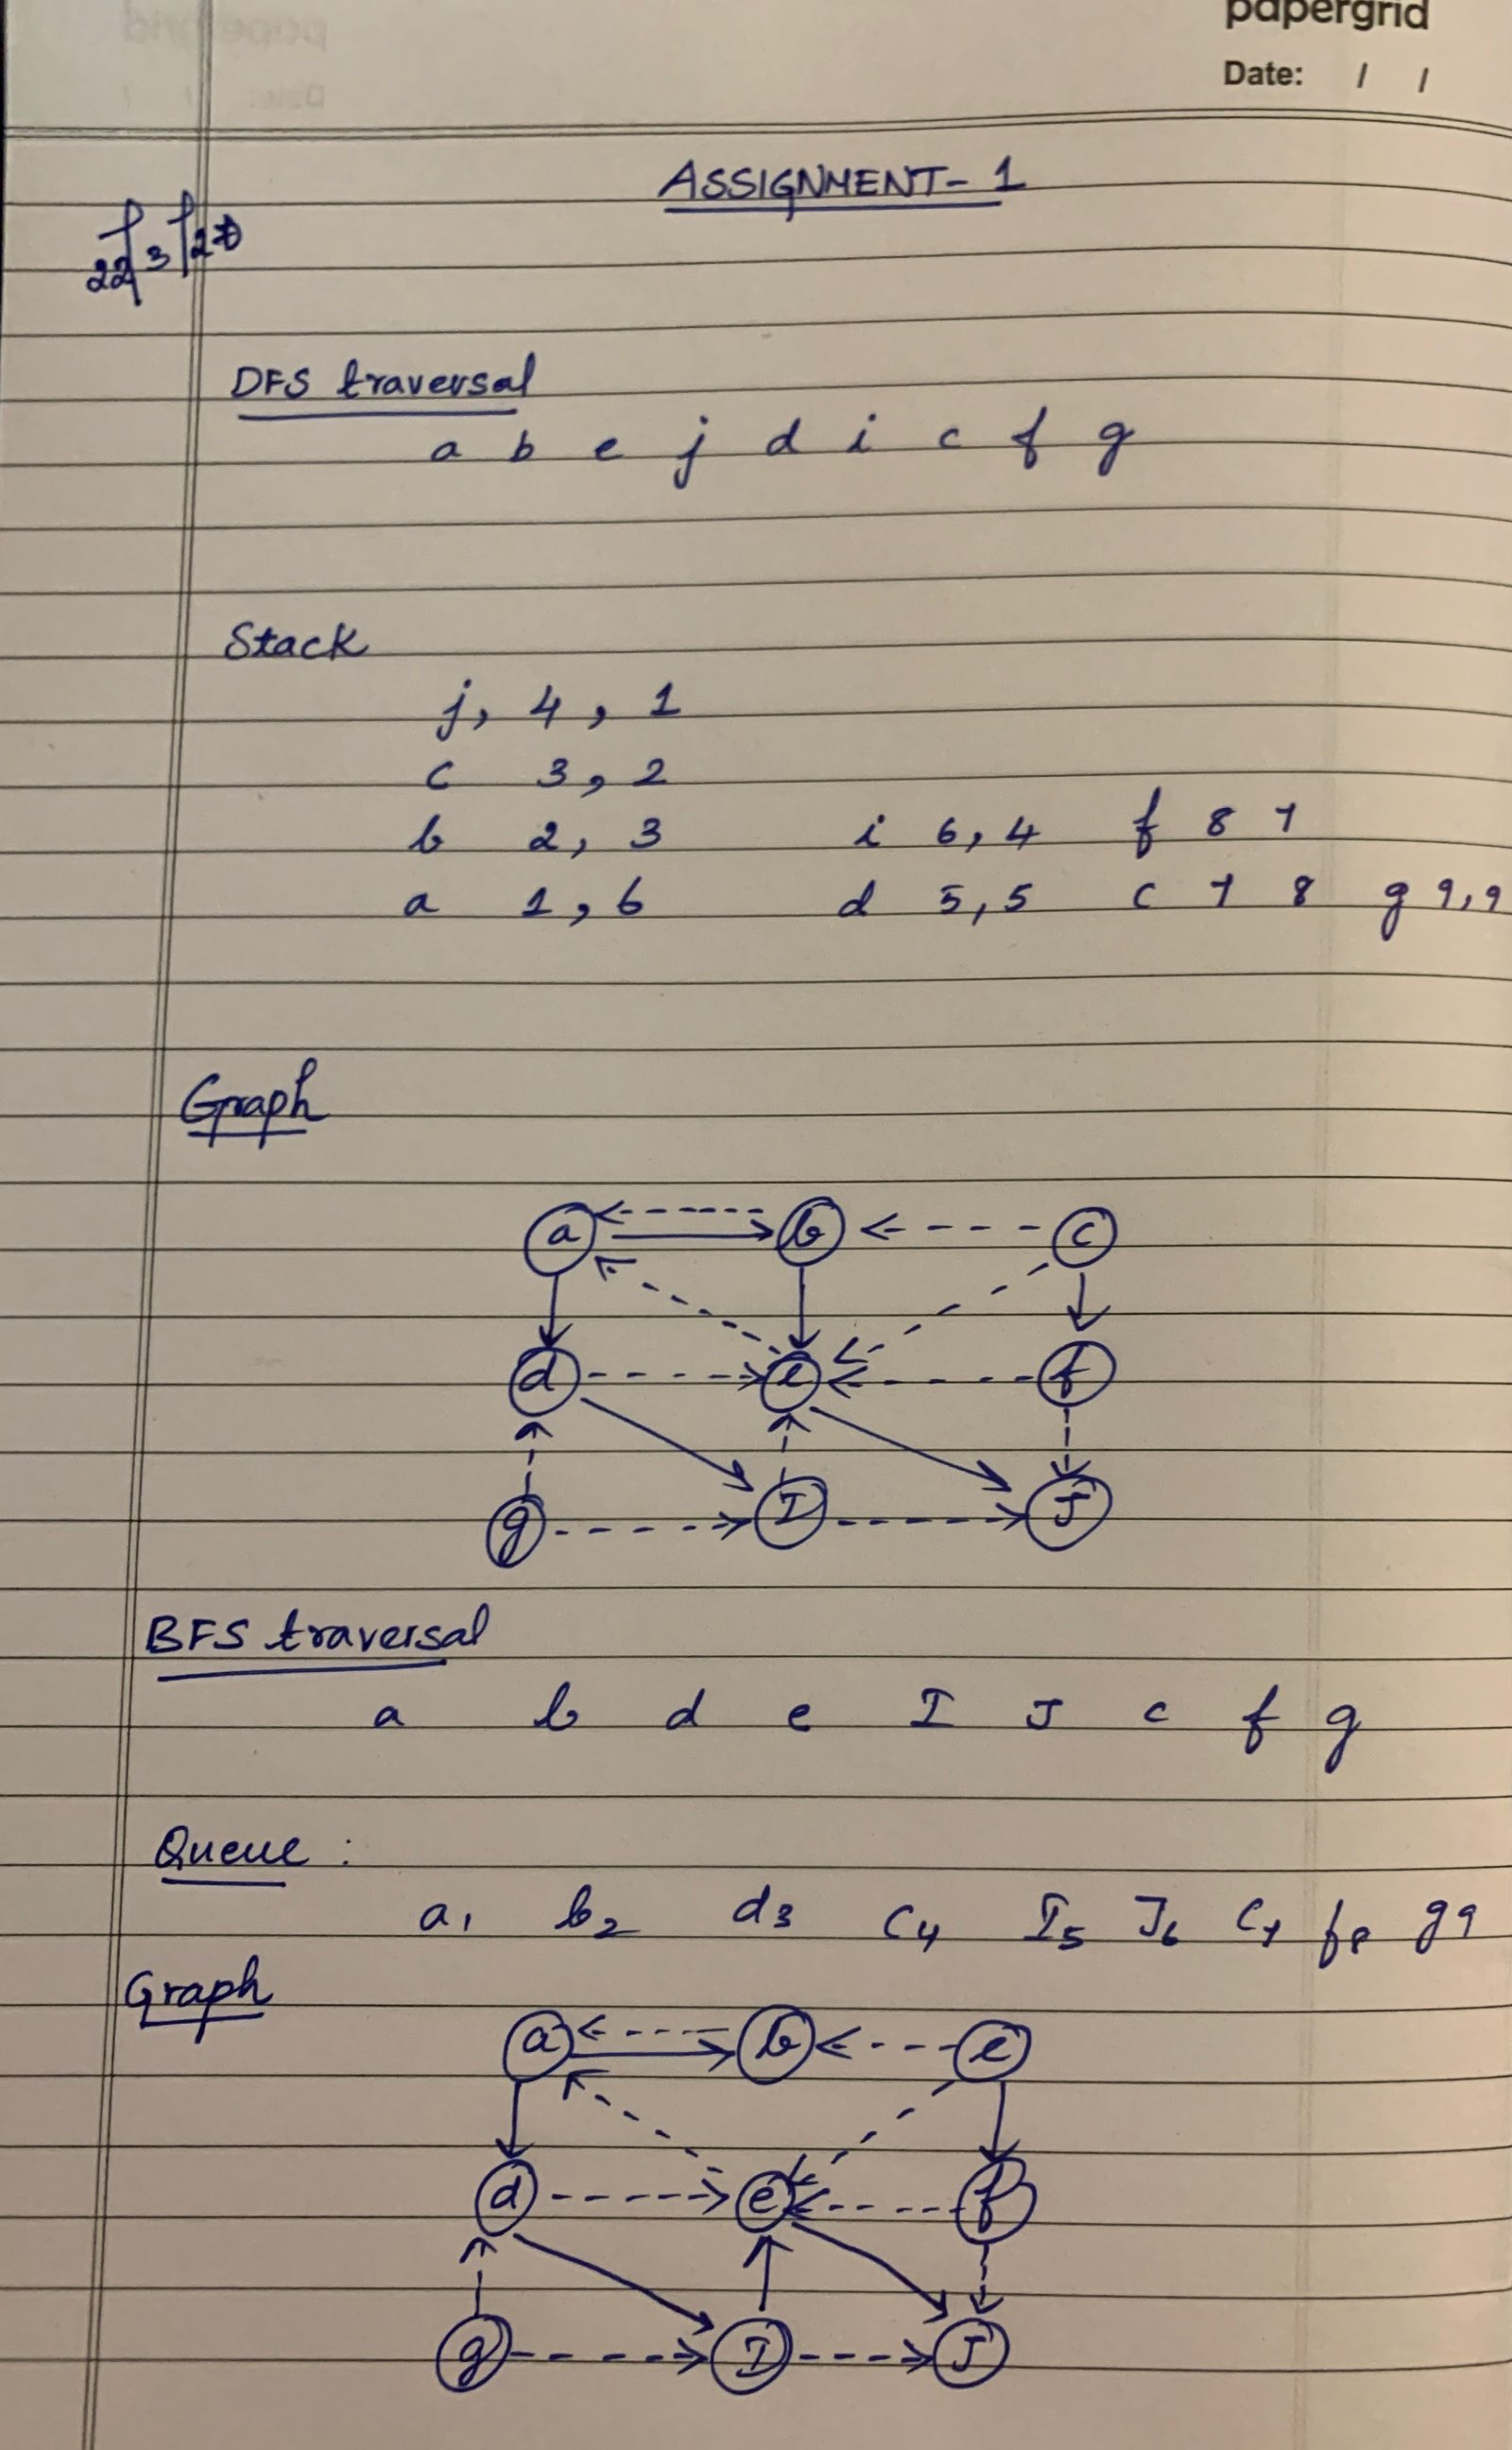 papergrid
Date: / /
ASSIGNMENT- 1
DFS traversal
a b e j d i c f g
Stack
j, 4, 1
c 3, 2
b 2, 3 i 6, 4 f 8 7
a 1, 6 d 5, 5 c 7 8 g 9, 9
Graph
a b c
d e f
g I J
BFS traversal
a b d e I J c f g
Queue :
a1 b2 d3 C4 I5 J6 C7 f8 g9
Graph
a b e
d e f
g I J